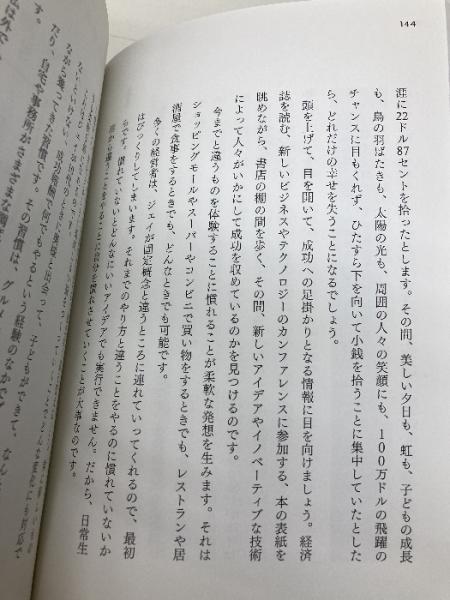 144
涯に22ドル87セントを拾ったとします。その間、美しい夕日も、虹も、子どもの成長
も、鳥の羽ばたきも、太陽の光も、周囲の人々の笑顔にも、100万ドルの飛躍の
チャンスに目もくれず、ひたすら下を向いて小銭を拾うことに集中していたとした
ら、どれだけの幸せを失うことになるでしょう。
頭を上げて、目を開いて、成功への足掛かりとなる情報に目を向けましょう。経済
誌を読む、新しいビジネスやテクノロジーのカンファレンスに参加する、本の表紙を
眺めながら、書店の棚の間を歩く、その間、新しいアイデアやイノベーティブな技術
によって人々がいかにして成功を収めているのかを見つけるのです。
今までと違うものを体験することに慣れることが柔軟な発想を生みます。それは
ショッピングモールやスーパーやコンビニで買い物をするときでも、レストランや居
酒屋で食事をするときでも、どんなときでも可能です。
多くの経営者は、ジェイが固定概念と違うところに連れていってくれるので、最初
はびっくりしてしまいます。それまでのやり方と違うことをやるのに慣れていないか
らです。慣れていないとどんなにいいアイデアでも実行できません。だから、日常生
活から違うことをやることに自分を慣れさせていくことが大事なのです。
成功報酬で何でもやるという経験のなかで
ながら養ってきた習慣です。その習慣は、グルメ
だり、自宅や事務所がさまざまな
す。